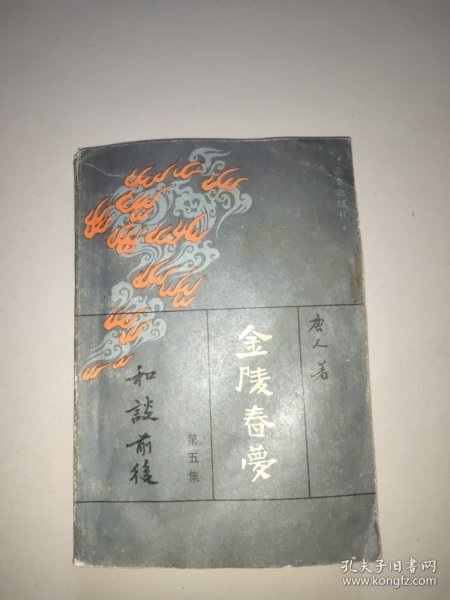 北京出版社
唐人著
金陵春夢
第五集
和談前後
孔夫子旧书网
www.kongfz.com